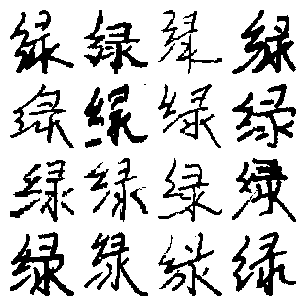 绿绿绿绿
绿绿绿绿
绿绿绿绿
绿绿绿绿